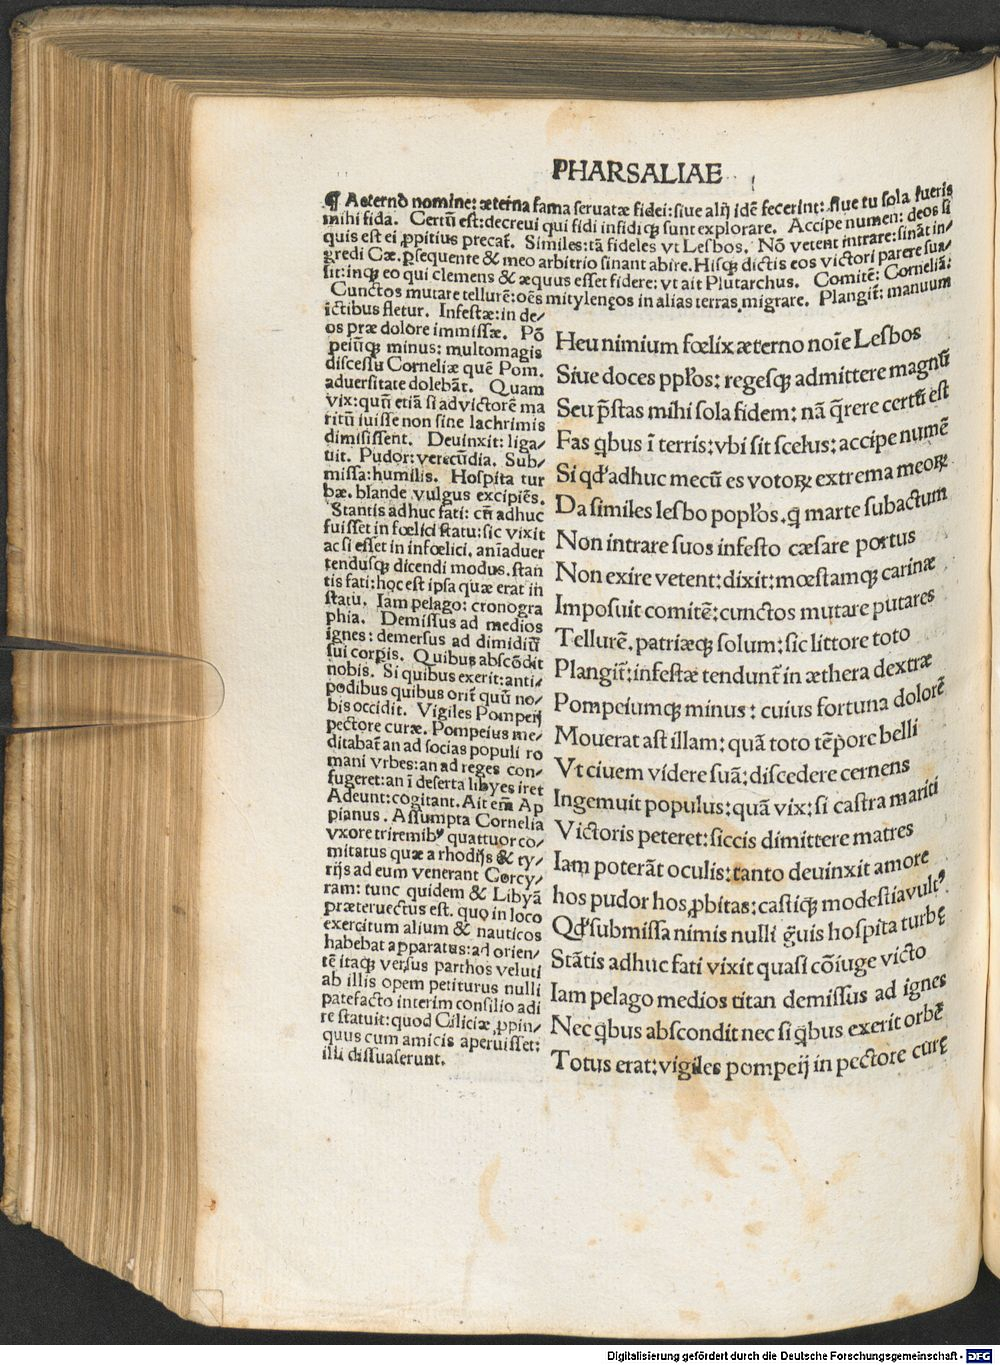 PHARSALIAE
¶ Aeterno nomine: æterna fama seruatæ fidei: siue alij idē fecerint: siue tu sola fueris
mihi fida. Certū est: decreui qui fidi infidiꝙ sunt explorare. Accipe numen: deos si
quis est ei ꝓpitius precat᷑. Similes: tā fideles vt Lesbos. Nō vetent intrare: sināt in/
gredi Cæ. ꝑsequente & meo arbitrio sinant abire. Hisꝙ dictis eos victori parere sua/
sit: inꝙ eo qui clemens & æquus esset fidere: vt ait Plutarchus. Comitē: Corneliā:
Cunctos mutare tellurē: oēs mitylenęos in alias terras migrare. Plangit᷑: manuum
ictibus fletur. Infestæ: in de/
os præ dolore immissæ. Pō
peiūꝙ minus: multomagis
discessu Corneliæ quē Pom.
aduersitate dolebāt. Quam
vix: quū etiā si ad victorē ma
ritū iuisse non sine lachrimis
dimisissent. Deuinxit: liga/
uit. Pudor: verecūdia. Sub/
missa: humilis. Hospita tur
bæ. blande vulgus excipiēs.
Stantis adhuc fati: cū adhuc
fuisset in fœlici statu: sic vixit
ac si esset in infœlici. aniaduer
tendusꝙ dicendi modus. stan
tis fati: hoc est ipsa quæ erat in
statu. Iam pelago: cronogra
phia. Demissus ad medios
ignes: demersus ad dimidiū
sui corpis. Quibus abscōdit
nobis. Si quibus exerit: anti/
podibus quibus orit᷑ quū no/
bis occidit. Vigiles Pompeij
pectore curæ. Pompeius me/
ditabat᷑ an ad socias populi ro
mani vrbes: an ad reges con/
fugeret: an ī deserta libyes iret
Adeunt: cogitant. Ait em̄ Ap
pianus. Assumpta Cornelia
vxore triremibꝰ quattuor co/
mitatus quæ a rhodijs & ty/
rijs ad eum venerant Corcy/
ram: tunc quidem & Libyā
præteruectus est. quo in loco
exercitum alium & nauticos
habebat apparatus: ad orien/
tē itaꝙ versus parthos veluti
ab illis opem petiturus nulli
patefacto interim consilio adi
re statuit: quod Ciliciæ ꝓpin/
quus cum amicis aperuisset:
illi dissuaserunt.
Heu nimium fœlix æterno noīe Lesbos
Siue doces pplos: regesꝙ admittere magnū
Seu p̄stas mihi sola fidem: nā q̄rere certū est
Fas qͥbus ī terris: vbi sit scelus: accipe numē
Si qd̕ adhuc mecū es votoꝝ extrema meoꝝ
Da similes lesbo poplos. qͥ marte subactum
Non intrare suos infesto cæsare portus
Non exire vetent: dixit: mœstamꝙ carinæ
Imposuit comitē: cunctos mutare putares
Tellurē. patriæꝙ solum: sic littore toto
Plangit᷑: infestæ tendunt᷑ in æthera dextræ
Pompeiumꝙ minus: cuius fortuna dolorē
Mouerat ast illam: quā toto tēpore belli
Vt ciuem videre suā: discedere cernens
Ingemuit populus: quā vix: si castra mariti
Victoris peteret: siccis dimittere matres
Iam poterāt oculis: tanto deuinxit amore
hos pudor hos ꝓbitas: castiꝙ modestia vultꝰ
Qd̕ submissa nimis nulli g̊uis hospita turbę
Stātis adhuc fati vixit quasi cōiuge victo
Iam pelago medios titan demissus ad ignes
Nec qͥbus abscondit nec si qͥbus exerit orbē
Totus erat: vigiles pompeij in pectore curę
Digitalisierung gefördert durch die Deutsche Forschungsgemeinschaft - DFG